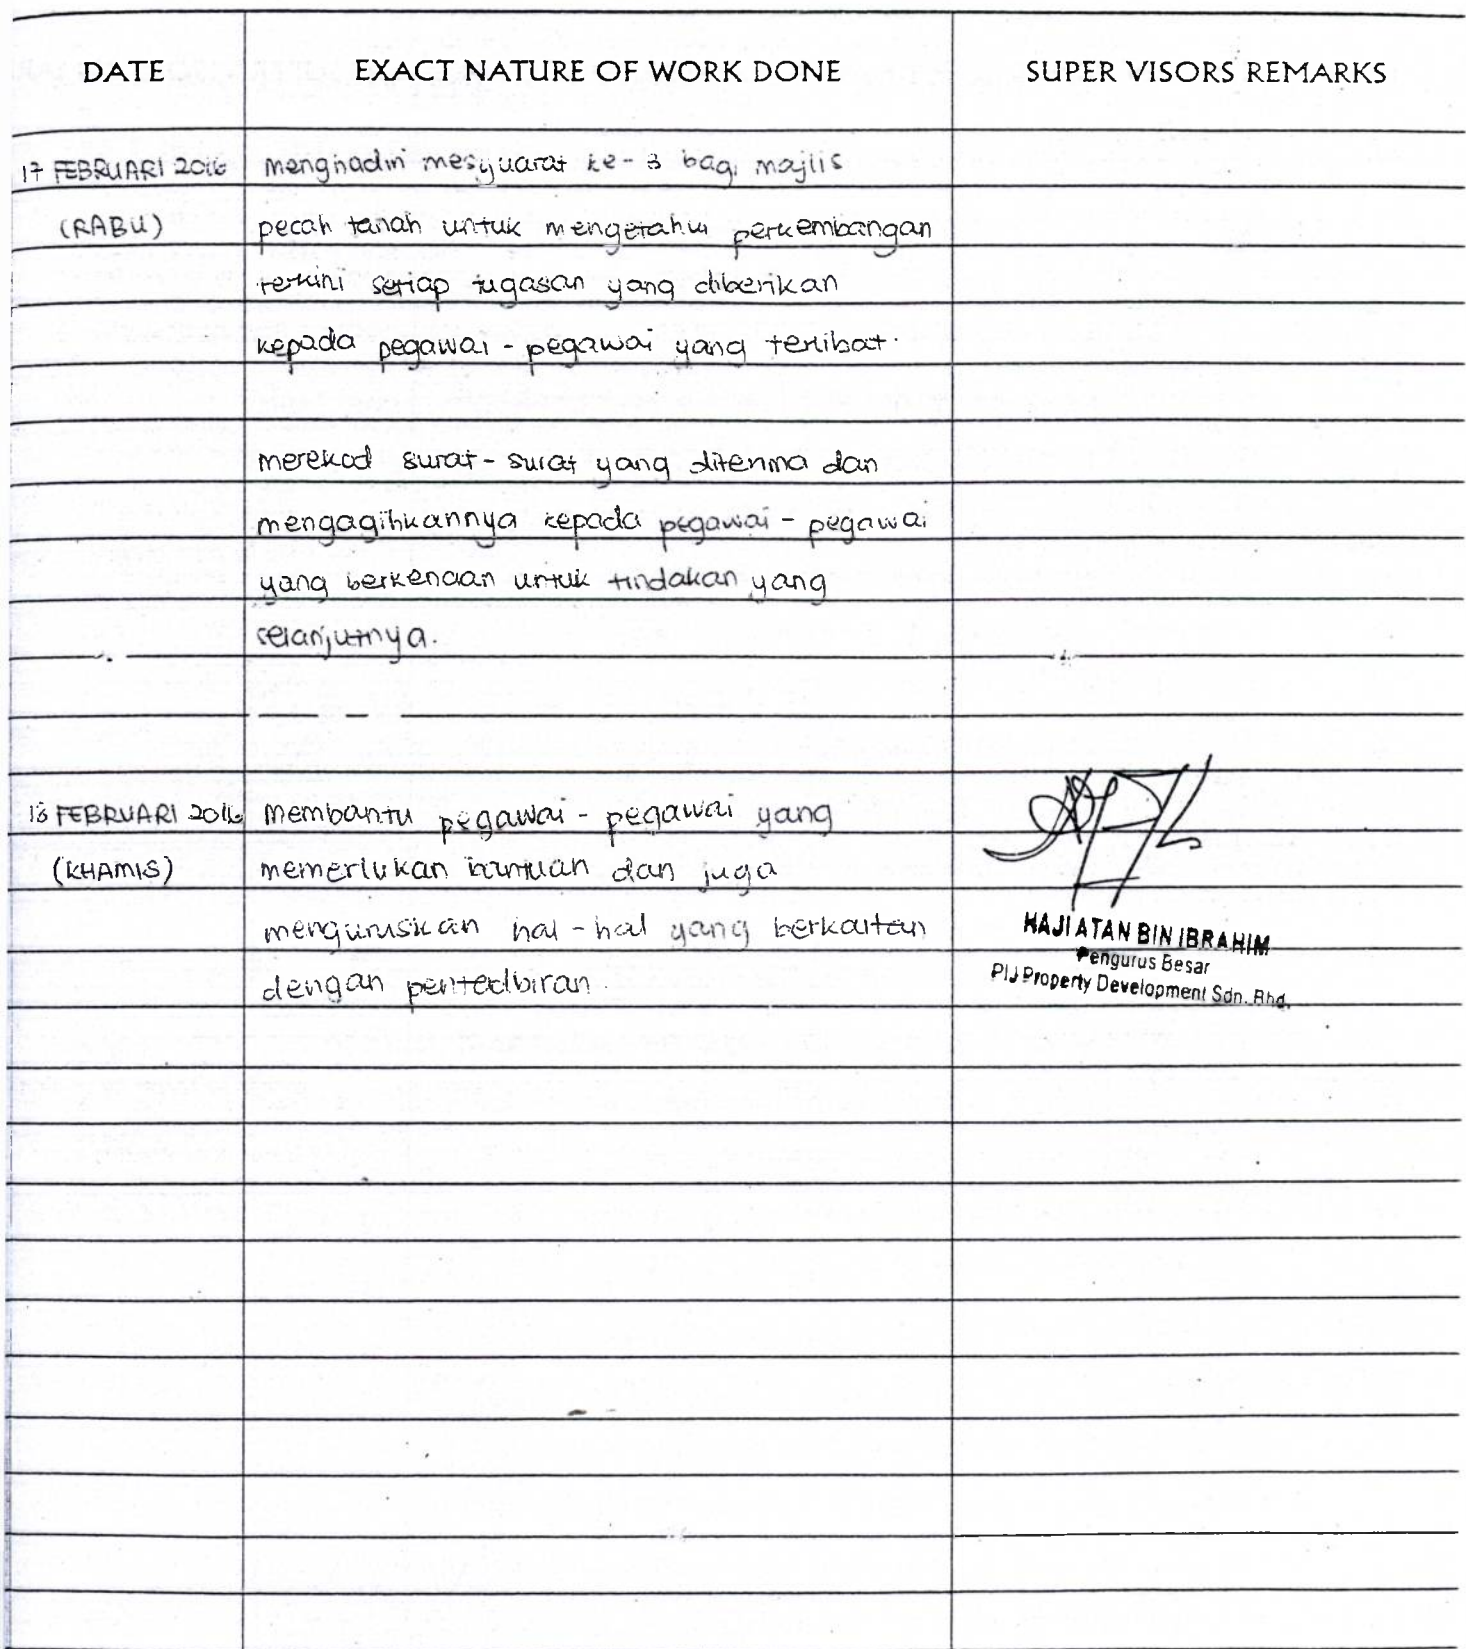 DATE EXACT NATURE OF WORK DONE SUPER VISORS REMARKS
17 FEBRUARI 2016 menghadiri mesyuarat ke-3 bagi majlis
(RABU) pecah tanah untuk mengetahui perkembangan
terkini setiap tugasan yang diberikan
kepada pegawai-pegawai yang terlibat.
merekod surat-surat yang diterima dan
mengagihkannya kepada pegawai-pegawai
yang berkenaan untuk tindakan yang
selanjutnya.
18 FEBRUARI 2016 membantu pegawai-pegawai yang
(KHAMIS) memerlukan bantuan dan juga
menguruskan hal-hal yang berkaitan
dengan pentadbiran.
HAJI ATAN BIN IBRAHIM
Pengurus Besar
PIJ Property Development Sdn. Bhd.